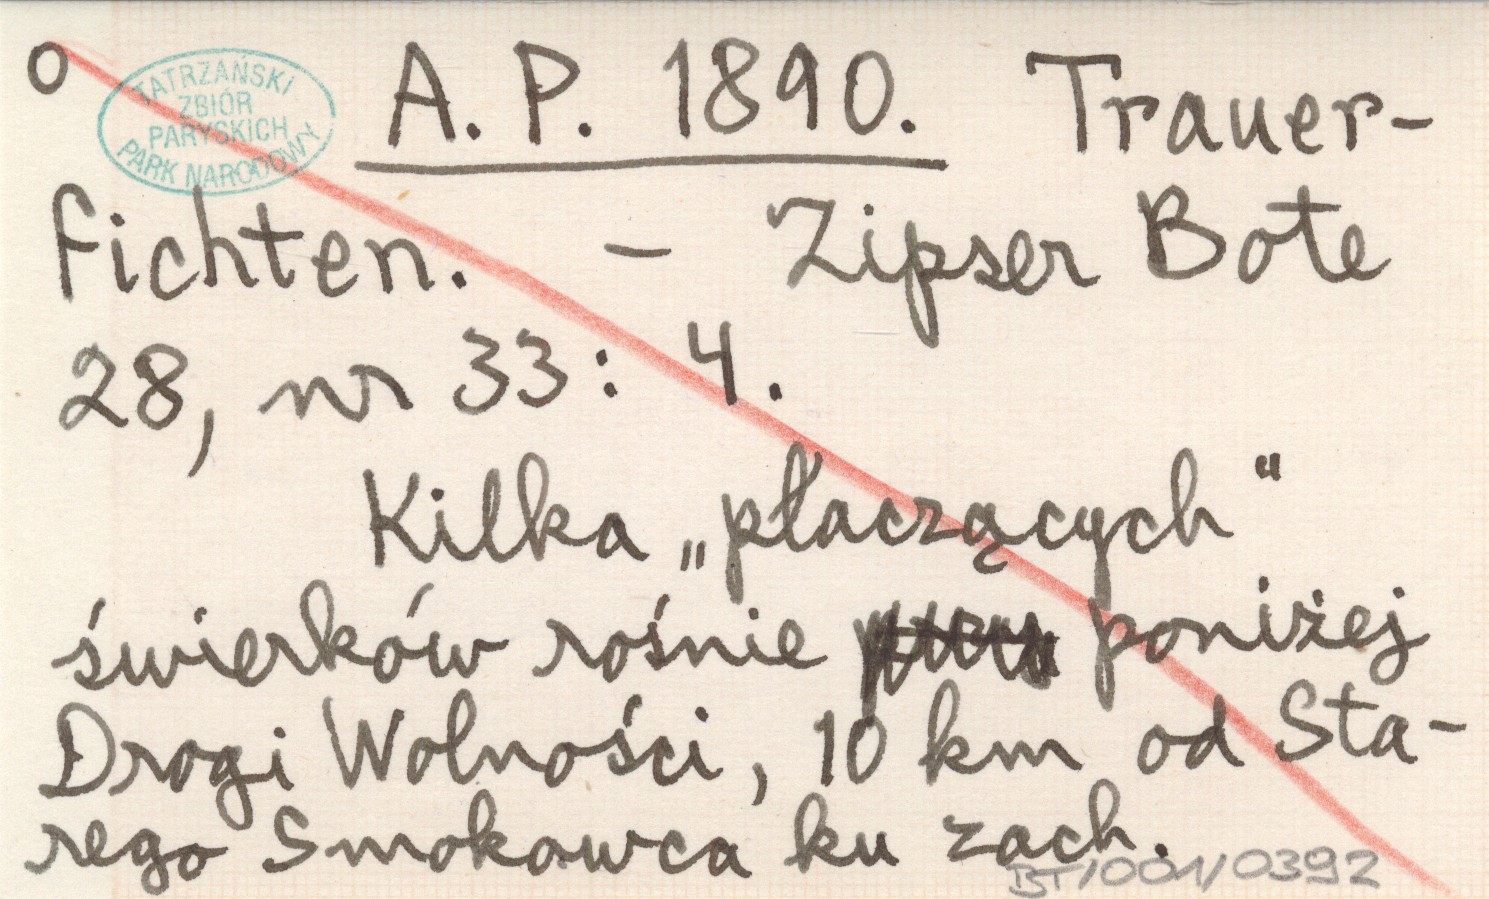 o
TATRZAŃSKI
ZBIÓR
PARYSKICH
PARK NARODOWY
A. P. 1890. Trauer-
fichten. - Zipser Bote
28, nr 33: 4.
Kilka „płaczących"
świerków rośnie poniżej
Drogi Wolności, 10 km od Sta-
rego Smokowca ku zach.
BT/001/0392